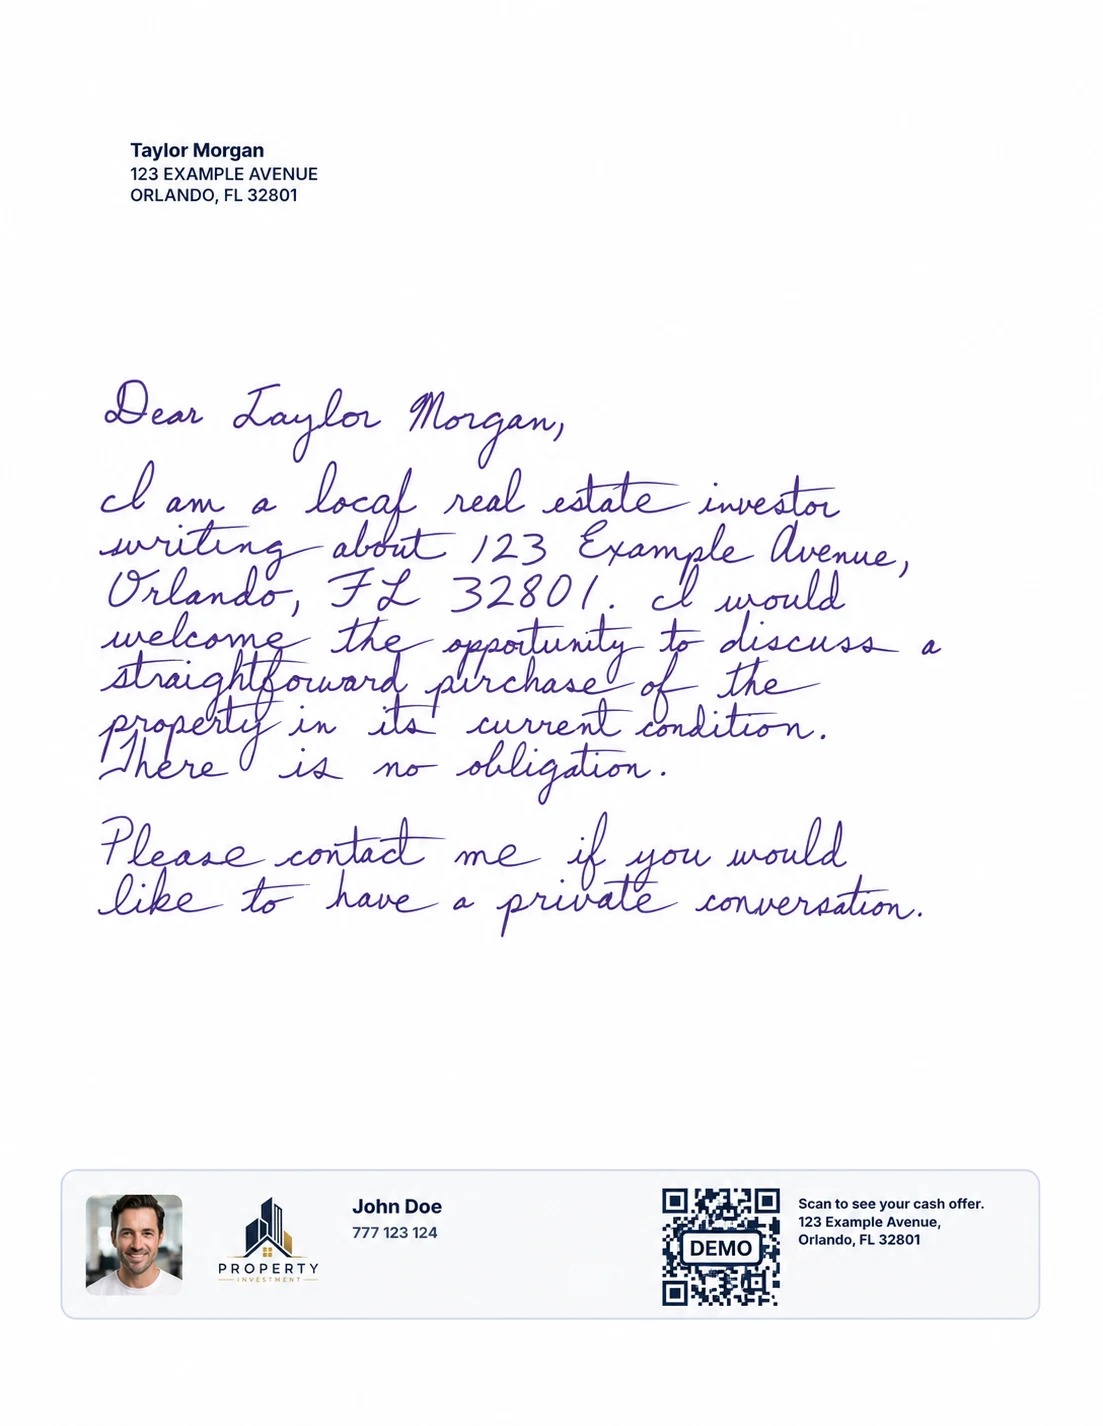 Taylor Morgan
123 EXAMPLE AVENUE
ORLANDO, FL 32801
Dear Taylor Morgan,
I am a local real estate investor
writing about 123 Example Avenue,
Orlando, FL 32801. I would
welcome the opportunity to discuss a
straightforward purchase of the
property in its current condition.
There is no obligation.
Please contact me if you would
like to have a private conversation.
PROPERTY
INVESTMENT
John Doe
777 123 124
DEMO
Scan to see your cash offer.
123 Example Avenue,
Orlando, FL 32801